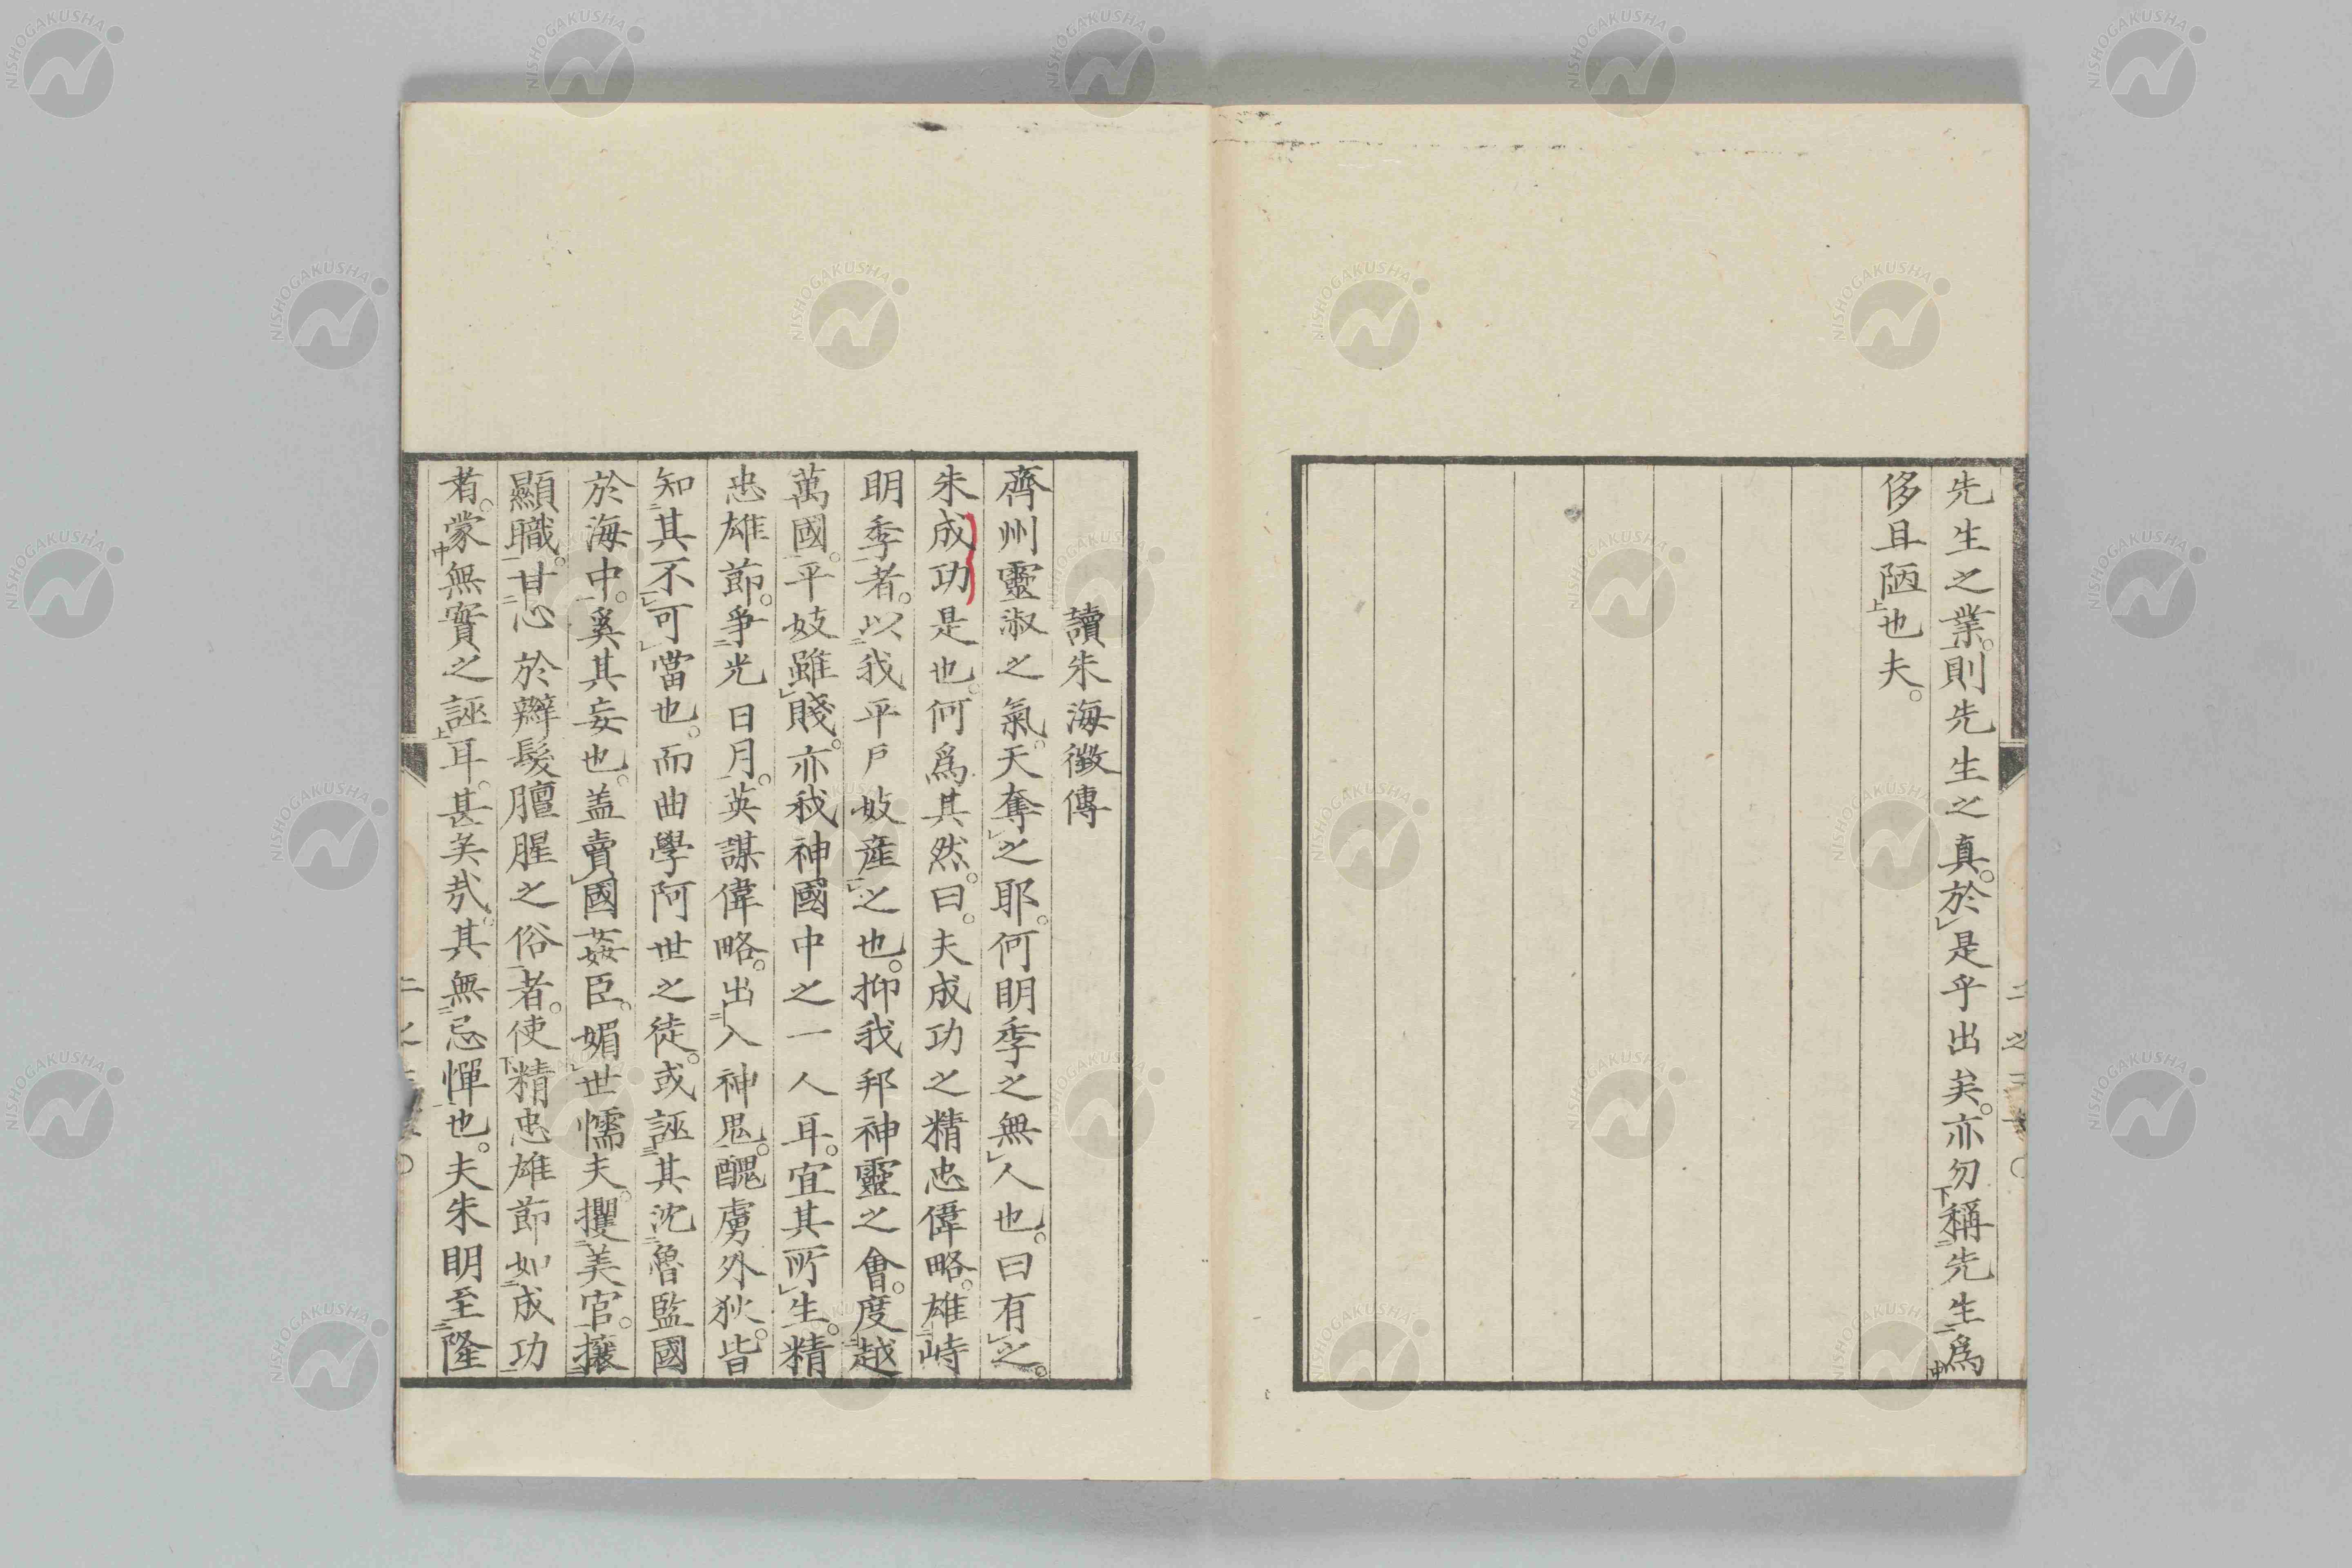 先生之業。則先生之真。於是乎出矣。亦勿稱先生爲
侈且陋也夫。
讀朱海徵傳
齊州靈淑之氣。天奪之耶。何明季之無人也。曰有之。
朱成功是也。何爲其然。曰。夫成功之精忠偉略。雄峙
明季者。以我平戶妓産之也。抑我邦神靈之會。度越
萬國。平妓雖賤。亦我神國中之一人耳。宜其所生。精
忠雄節。爭光日月。英謀偉略。出入神鬼。醜虜外狄。皆
知其不可當也。而曲學阿世之徒。或誣其沈魯監國
於海中。奚其妄也。盖賣國姦臣。媚世懦夫。攫美官。攘
顯職。甘心於辮髮膻腥之俗者。使精忠雄節如成功
者。蒙無實之誣耳。甚矣哉。其無忌憚也。夫朱明至隆
NISHOGAKUSHA